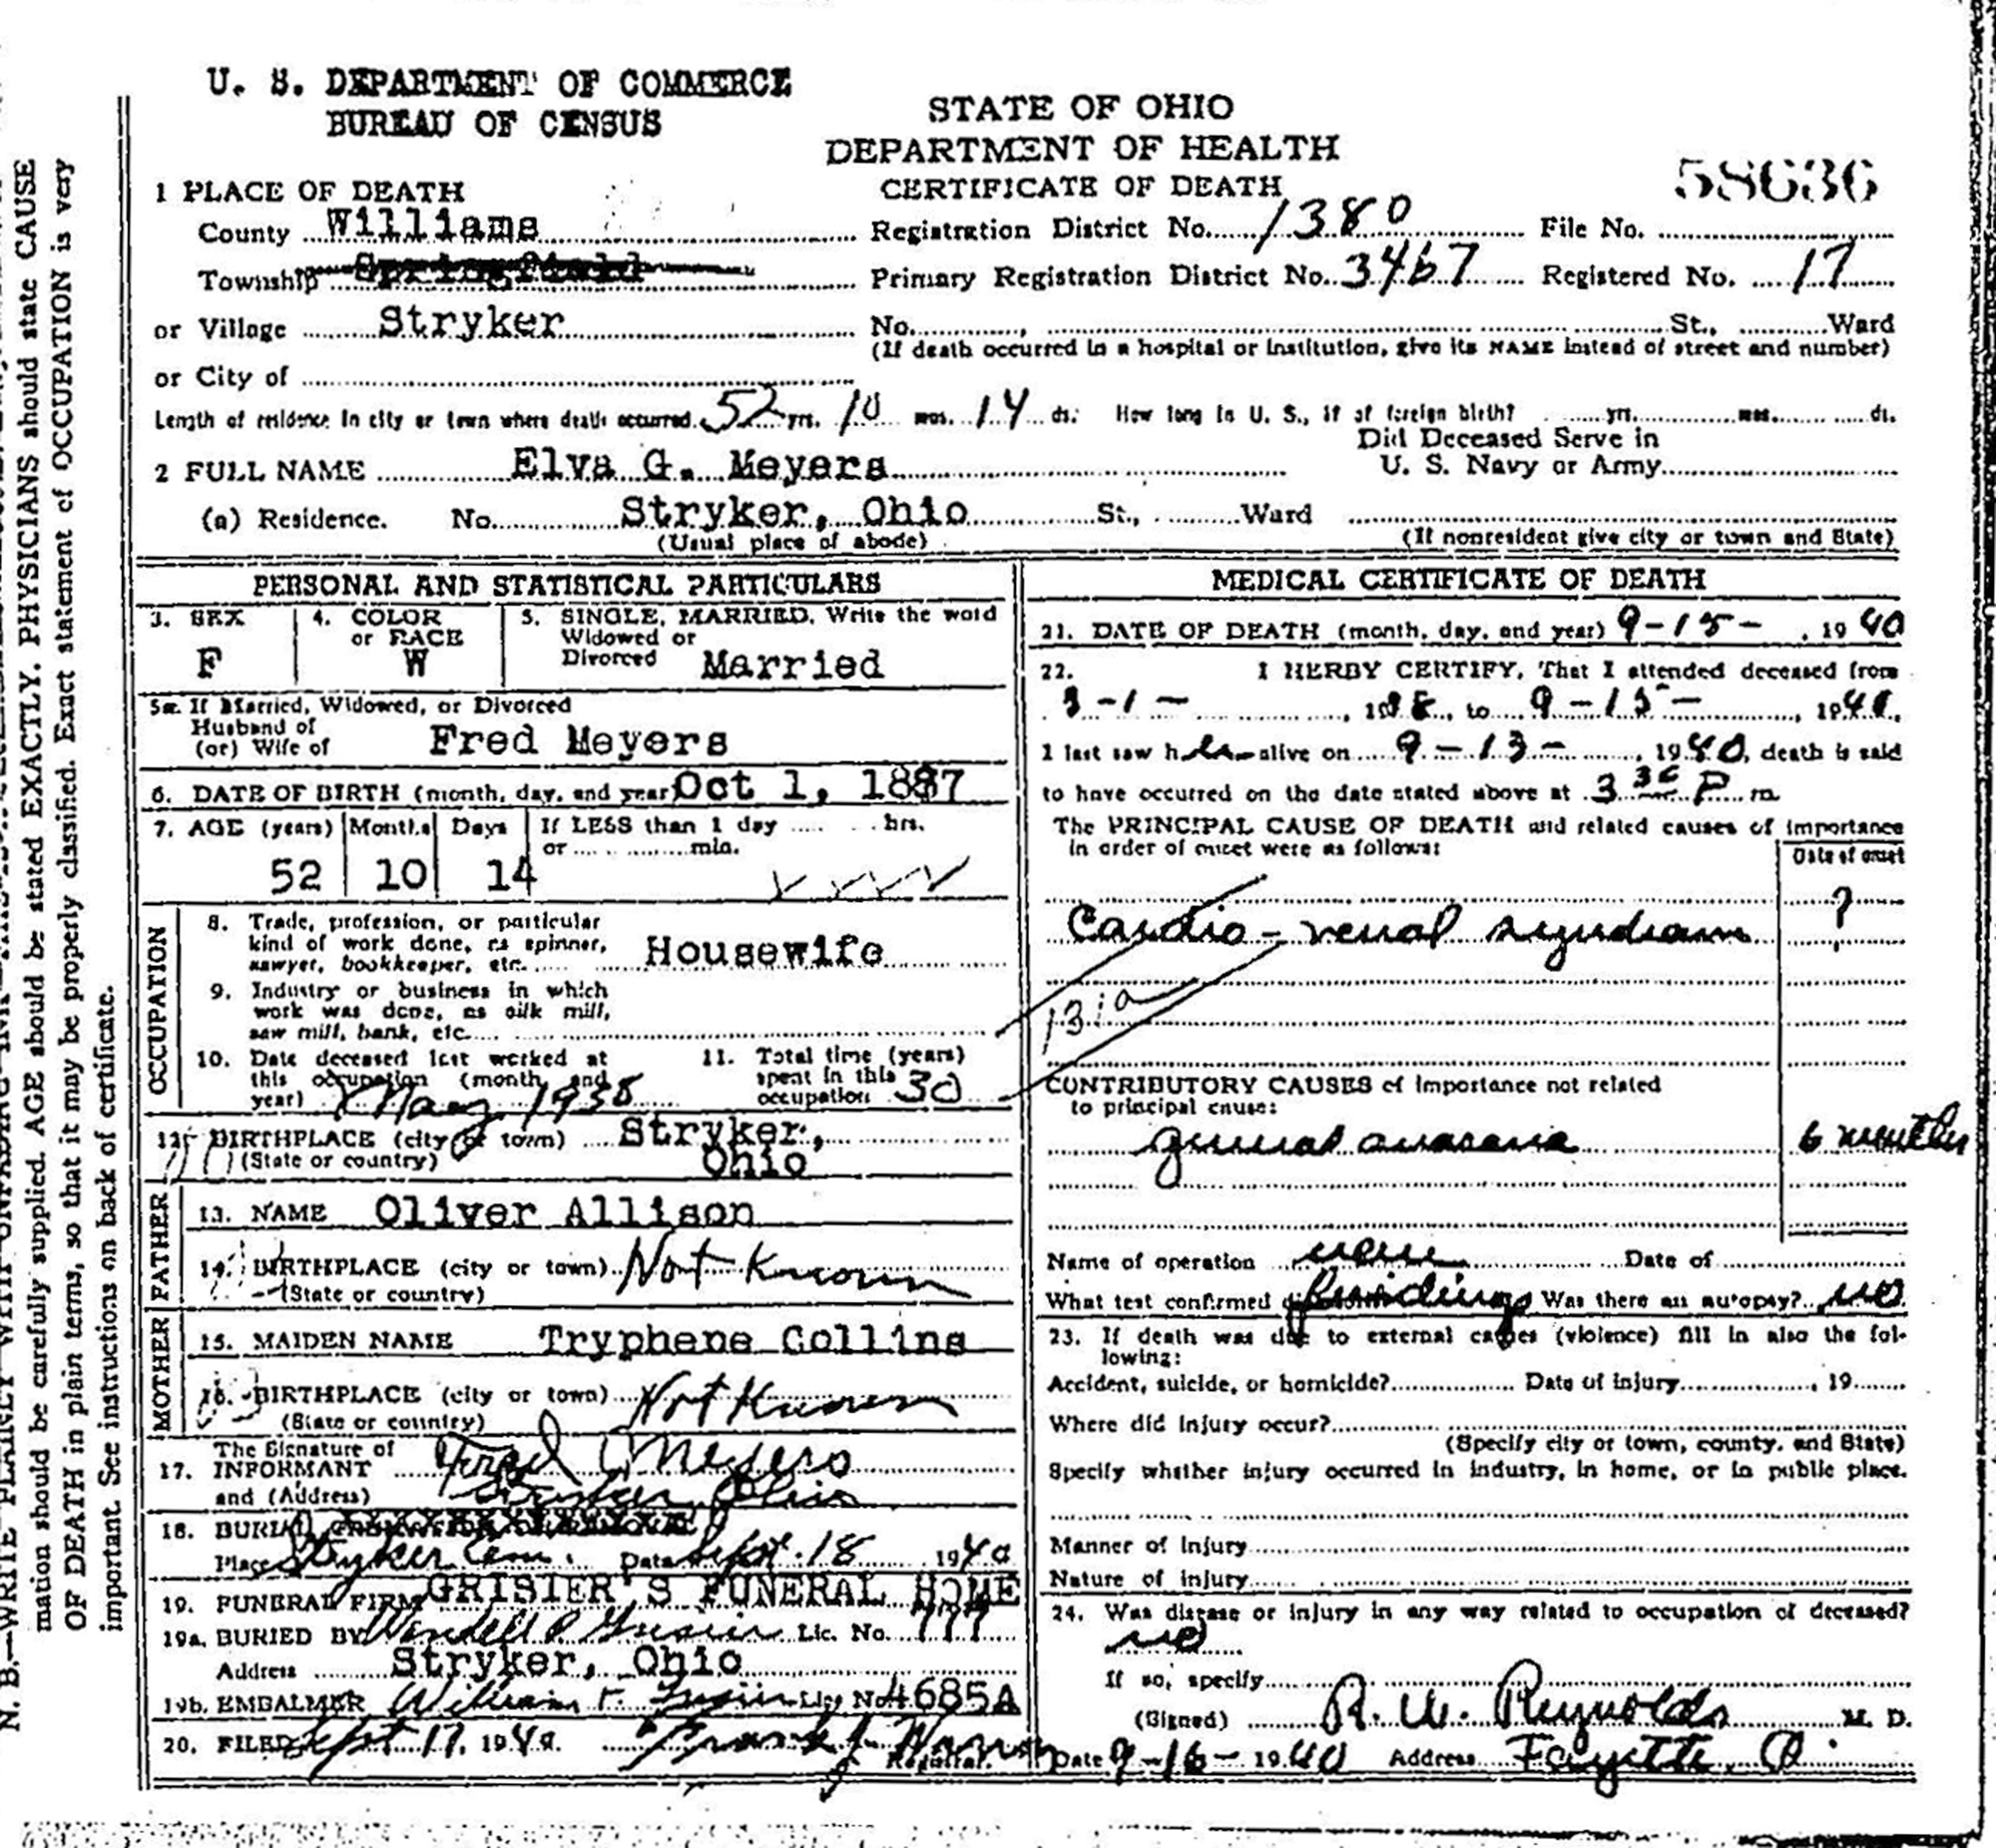 U. S. DEPARTMENT OF COMMERCE
BUREAU OF CENSUS
STATE OF OHIO
DEPARTMENT OF HEALTH
CERTIFICATE OF DEATH
58636
1 PLACE OF DEATH
County Williams Registration District No. 1380 File No.
Township Springfield Primary Registration District No. 3467 Registered No. 17
or Village Stryker No. St., Ward
(If death occurred in a hospital or institution, give its NAME instead of street and number)
or City of
Length of residence in city or town where death occurred 52 yrs. 10 mos. 14 ds. How long in U. S., if of foreign birth? yrs. mos. ds.
Did Deceased Serve in
U. S. Navy or Army
2 FULL NAME Elva G. Meyers
(a) Residence. No. Stryker, Ohio St., Ward
(Usual place of abode) (If nonresident give city or town and State)
PERSONAL AND STATISTICAL PARTICULARS
3. SEX F
4. COLOR or RACE W
5. SINGLE, MARRIED, Write the word
Widowed or
Divorced Married
5a. If Married, Widowed, or Divorced
Husband of
(or) Wife of Fred Meyers
6. DATE OF BIRTH (month, day, and year) Oct 1, 1887
7. AGE (years) Months Days If LESS than 1 day hrs.
or min.
52 10 14
OCCUPATION
8. Trade, profession, or particular
kind of work done, as spinner,
sawyer, bookkeeper, etc. Housewife
9. Industry or business in which
work was done, as silk mill,
saw mill, bank, etc.
10. Date deceased last worked at
this occupation (month and
year) May 1938
11. Total time (years)
spent in this
occupation 30
12. BIRTHPLACE (city or town) Stryker,
(State or country) Ohio
FATHER
13. NAME Oliver Allison
14. BIRTHPLACE (city or town) Not Known
(State or country)
MOTHER
15. MAIDEN NAME Tryphene Collins
16. BIRTHPLACE (city or town) Not Known
(State or country)
17. The Signature of
INFORMANT Fred Meyers
and (Address) Stryker Ohio
18. BURIAL
Place Stryker Cem. Date Sept. 18 1940
19. FUNERAL FIRM GRISIER'S FUNERAL HOME
19a. BURIED BY Wendell P Grisier Lic. No. 777
Address Stryker, Ohio
19b. EMBALMER William F. Grisier Lic. No. 4685A
20. FILED Sept 17, 1940 Frank J. Registrar.
MEDICAL CERTIFICATE OF DEATH
21. DATE OF DEATH (month, day, and year) 9-15- , 1940
22. I HERBY CERTIFY, That I attended deceased from
3-1- , 1938, to 9-15- , 1940.
I last saw her alive on 9-13- , 1940, death is said
to have occurred on the date stated above at 3 30 P. m.
The PRINCIPAL CAUSE OF DEATH and related causes of importance
in order of onset were as follows:
Date of onset
?
Cardio-renal syndrom
131a
CONTRIBUTORY CAUSES of importance not related
to principal cause:
general anasarca 6 months
Name of operation none Date of
What test confirmed findings Was there an autopsy? no
23. If death was due to external causes (violence) fill in also the fol-
lowing:
Accident, suicide, or homicide? Date of injury , 19
Where did injury occur?
(Specify city or town, county, and State)
Specify whether injury occurred in industry, in home, or in public place.
Manner of Injury
Nature of injury
24. Was disease or injury in any way related to occupation of deceased?
no
If so, specify
(Signed) R. W. Reynolds M. D.
Date 9-16- 1940 Address Fayette O.
N. B.—WRITE PLAINLY WITH UNFADING INK
mation should be carefully supplied. AGE should be stated EXACTLY. PHYSICIANS should state CAUSE
OF DEATH in plain terms, so that it may be properly classified. Exact statement of OCCUPATION is very
important. See instructions on back of certificate.